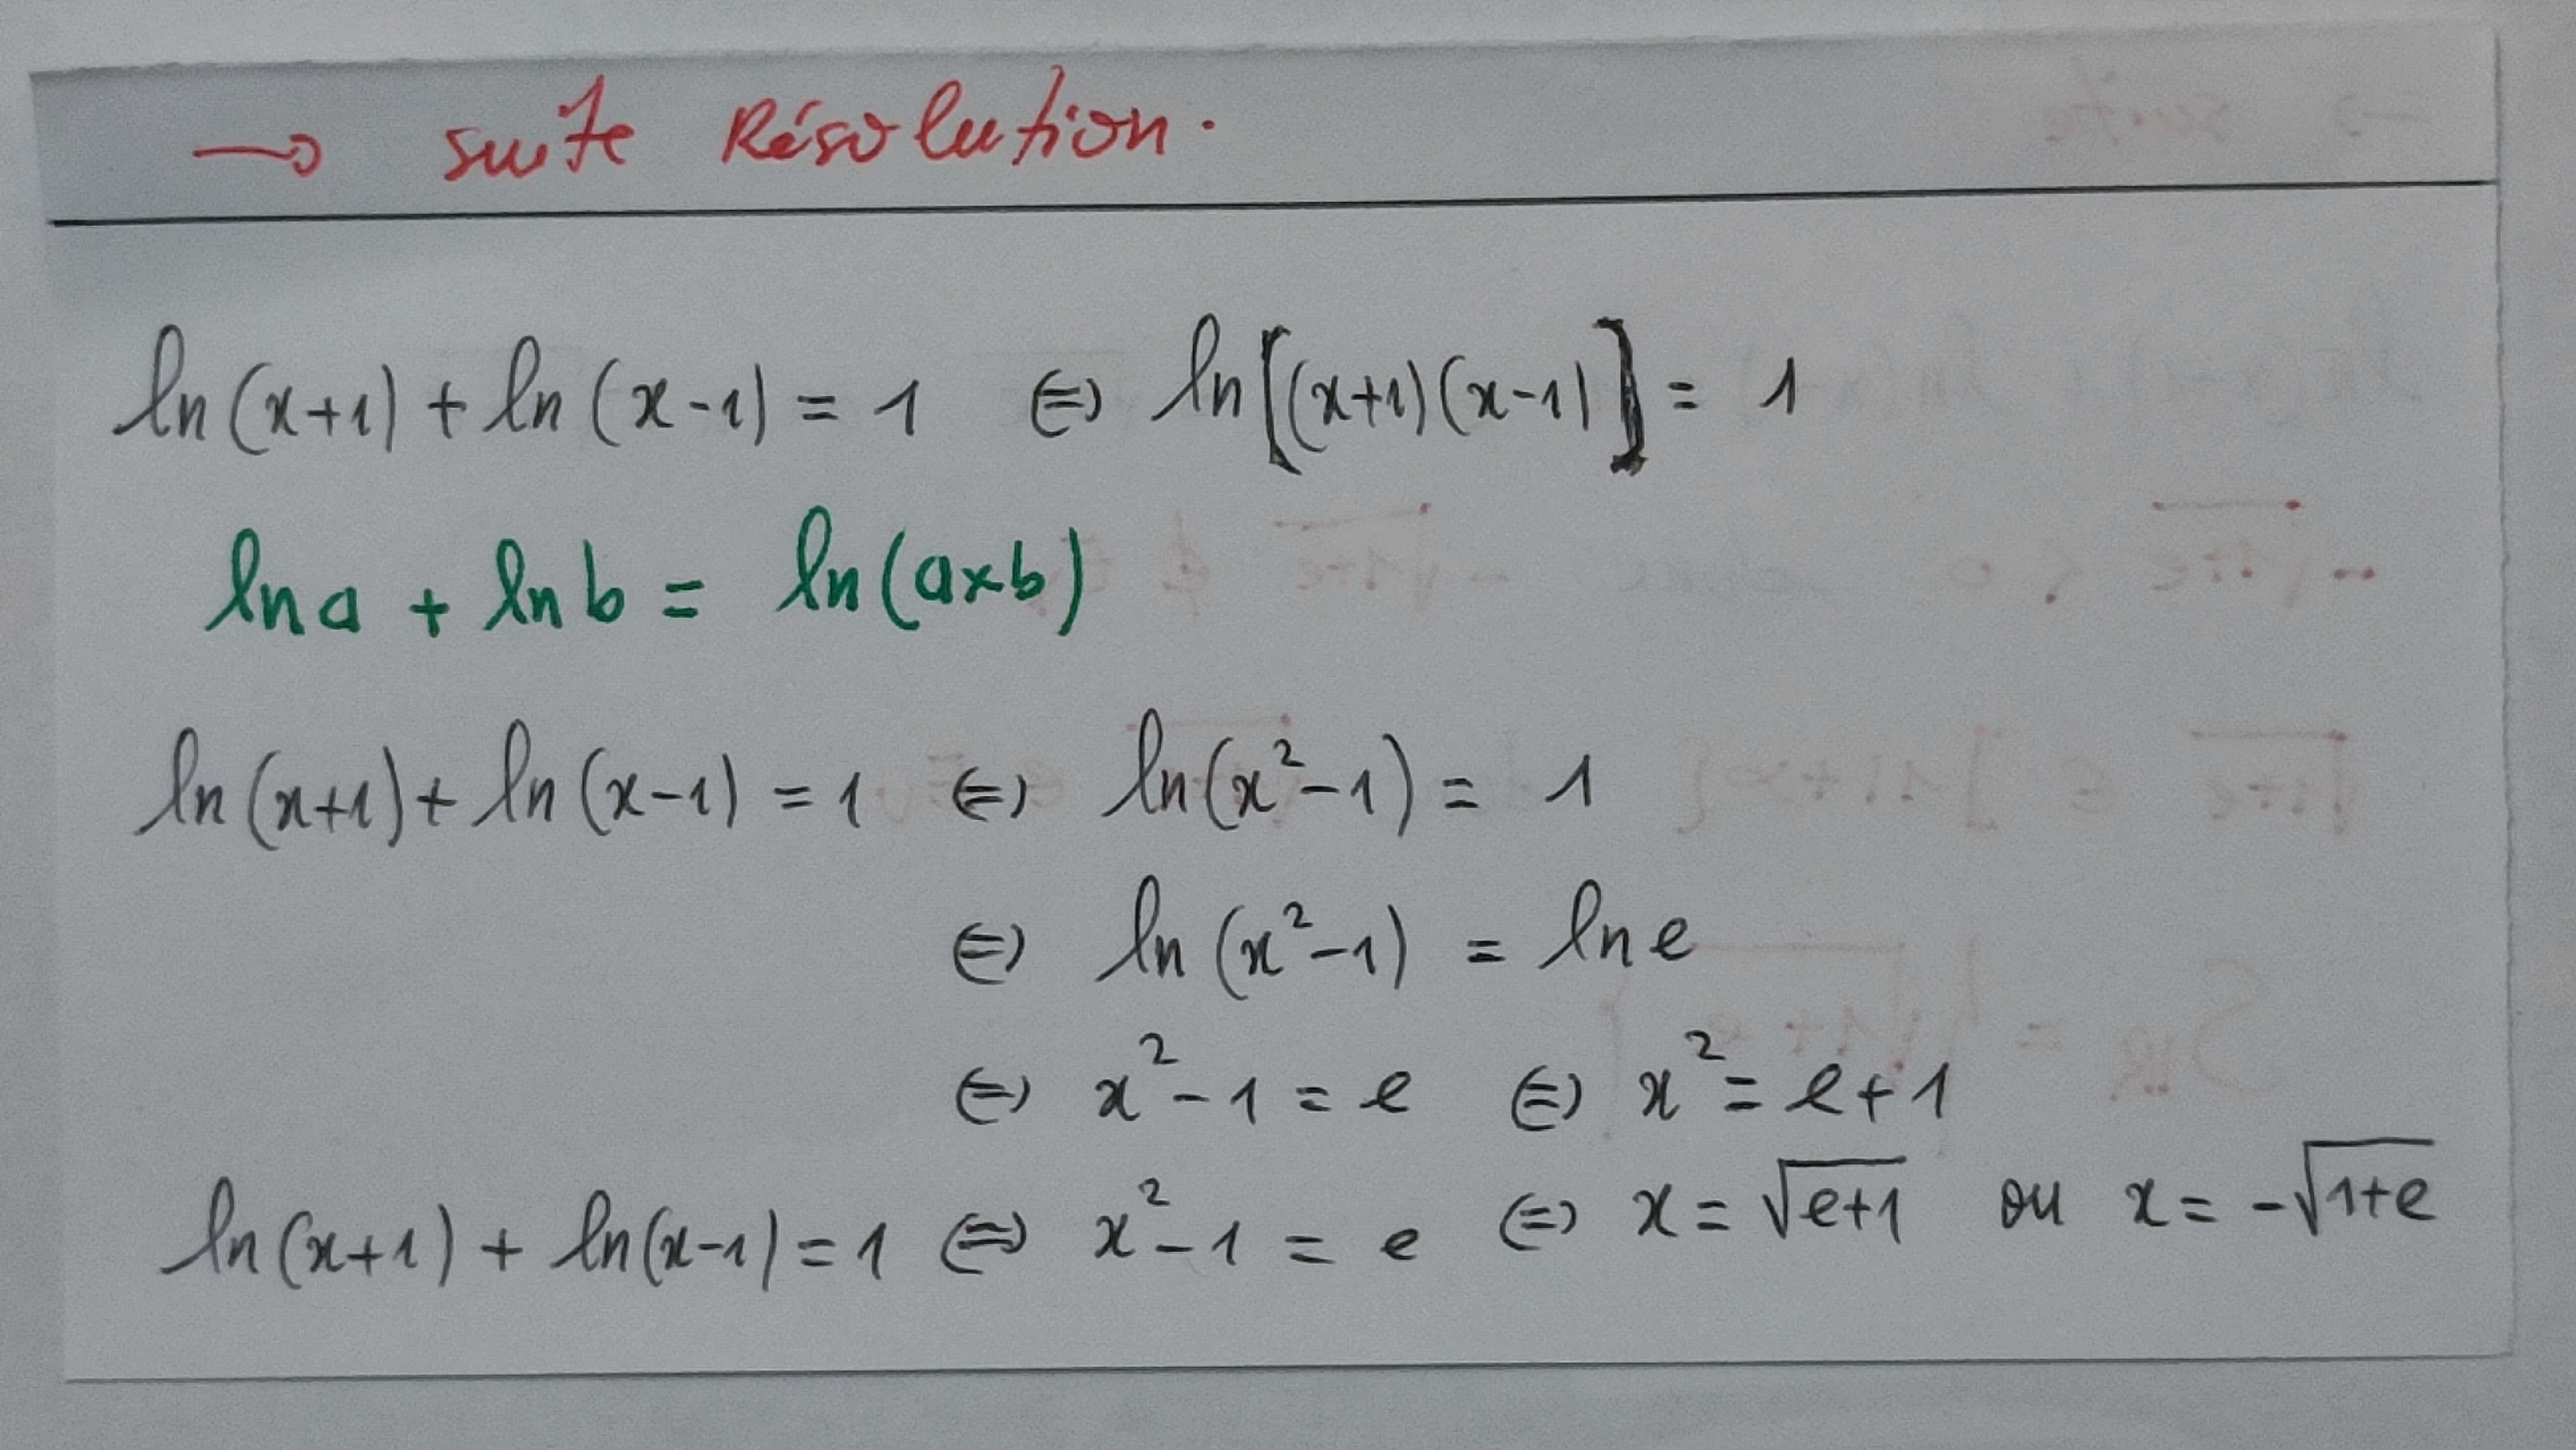 → suite Résolution.
ln(x+1) + ln(x-1) = 1 ⇔ ln[(x+1)(x-1)] = 1
ln a + ln b = ln(a×b)
ln(x+1) + ln(x-1) = 1 ⇔ ln(x²-1) = 1
⇔ ln(x²-1) = ln e
⇔ x²-1 = e ⇔ x² = e+1
ln(x+1) + ln(x-1) = 1 ⇔ x²-1 = e ⇔ x = √(e+1) ou x = -√(1+e)